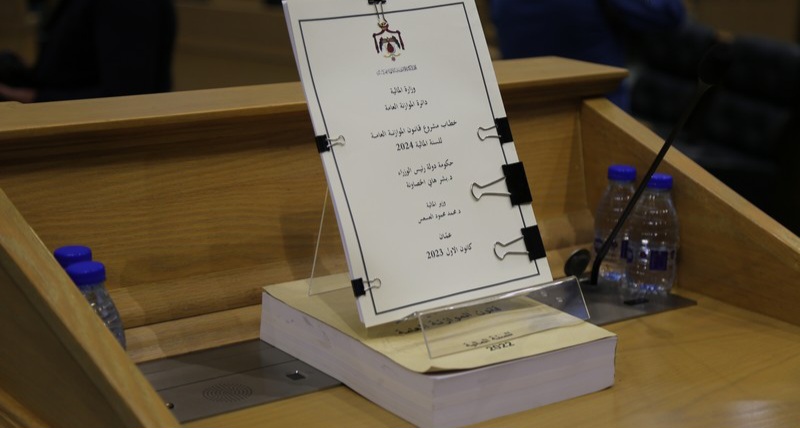 وزارة المالية
دائرة الموازنة العامة
خطاب مشروع قانون الموازنة العامة
للسنة المالية 2024
حكومة دولة رئيس الوزراء
د. بشر هاني الخصاونة
وزير المالية
د. محمد محمود العسعس
عمّان
كانون الأول 2023
قانون الموازنة العامة
للسنة المالية
2022